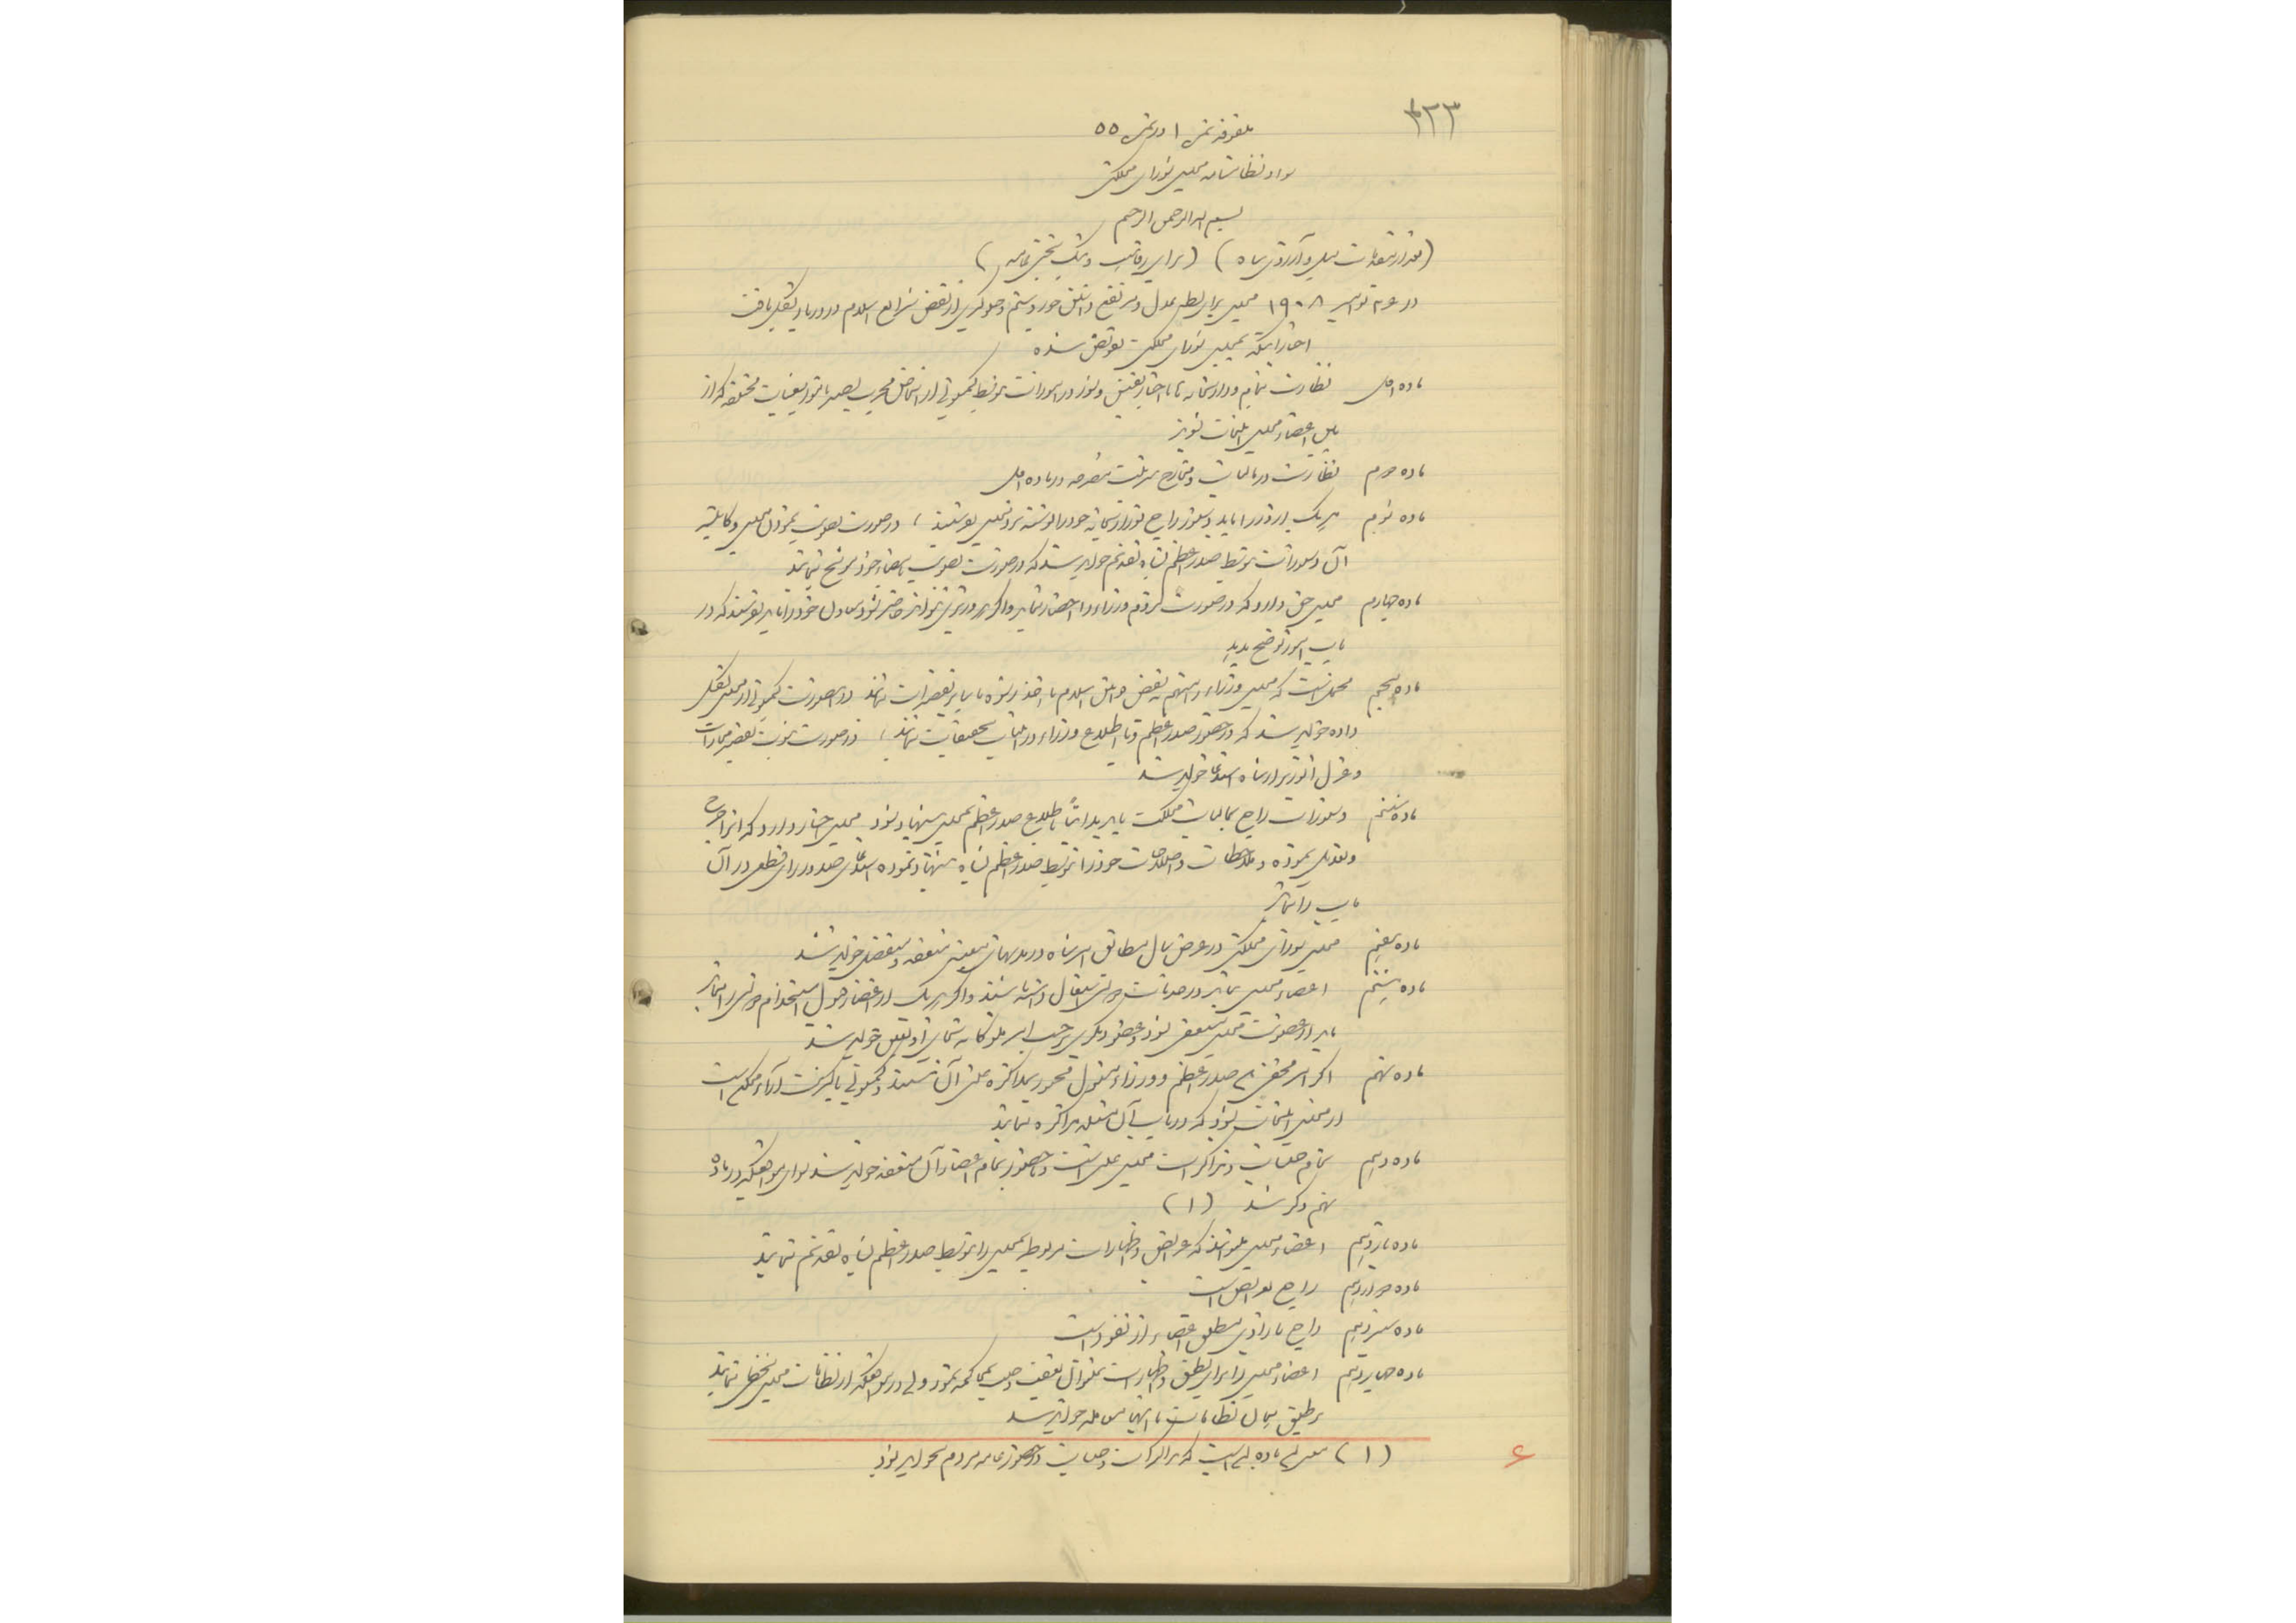 ۳۲۳
ملفوفه نمره ۱ در نمره ۵۵
سواد نظامنامه مجلس شورای مملکتی
بسم الله الرحمن الرحیم
در نوامبر ۱۹۰۸ مجلس برای بسط عدل و رفع جور و ستم و جلوگیری از نقض شرایع اسلام در دربار تشکیل یافت
اختیاراتیکه بمجلس شورای مملکتی تفویض شده
ماده اول نظارت تمام وزارتخانه ها با اختیار تفتیش در امورات توسط کمیسیونی از اشخاص مجرب بصیر که از
بین اعضاء مجلس انتخاب شوند
ماده دوم نظارت در مالیات و مخارج مملکت در ماده اول
ماده سوم هر یک از وزراء باید دستور راجع بوزارتخانه خود را نوشته نزد مجلس بفرستد، در صورت تصویب نمودن مجلس و کابینه
آن دستورات توسط صدراعظم بشاه تقدیم خواهد شد که در صورت تصویب بامضاء خود موشح نمایند
ماده چهارم مجلس حق دارد که در صورت لزوم وزراء را احضار نماید و اگر وزیری نتواند حاضر شود معاون خود را باید بفرستد که در
باب امور توضیح بدهد
ماده پنجم ممکن است که مجلس وزراء را متهم به نقض قوانین اسلام یا اخذ رشوه یا سایر تقصیرات نماید در اینصورت کمیسیونی از مجلس تشکیل
داده خواهد شد که در حضور صدراعظم و با اطلاع وزراء در آن باب تحقیقات نمایند، در صورت ثبوت تقصیر مجازات
و عزل آن وزیر از شاه استدعا خواهد شد
ماده ششم دستورات راجع بمالیات مملکت باید بدواً باطلاع صدراعظم بمجلس پیشنهاد شود مجلس اختیار دارد که آنرا جرح
و تعدیل نموده و ملاحظات و اصلاحات خود را توسط صدراعظم بشاه پیشنهاد نموده استدعای صدور رای قطعی در آن
باب را نماید
ماده هفتم مجلس شورای مملکتی در عرض سال مطابق امر شاه در مدتهای معین منعقد و منفصل خواهد شد
ماده هشتم اعضاء مجلس نباید در خدمات دولتی اشتغال داشته باشند و اگر هر یک از اعضاء قبول استخدام دولتی را نماید
باید از عضویت مجلس مستعفی شود و عضو دیگری بر حسب امر ملوکانه بجای او تعیین خواهد شد
ماده نهم اگر امر مخفی صدراعظم و وزراء مسئول مجبور بمذاکره علنی آن نیستند و کمیسیونی باکثریت آراء ممکن است
در مجلس انتخاب شود که در باب آن مسئله مذاکره نمایند
ماده دهم تمام جلسات و مذاکرات مجلس علنی است و با حضور تمام اعضاء آن منعقد خواهد شد سوای مواقعیکه در ماده
نهم ذکر شد (۱)
ماده یازدهم اعضاء مجلس میتوانند که عرایض و اظهارات مربوطه بمجلس را توسط صدراعظم بشاه تقدیم نمایند
ماده دوازدهم راجع بعرایض است
ماده سیزدهم راجع بآزادی مطلق اعضاء از نفوذ است
ماده چهاردهم اعضاء مجلس را برای نطق و اظهارات نمیتوان تعقیب و جلب بمحاکمه نمود ولی در مواقعیکه از نظامات مجلس تخطی نمایند
بر طبق همان نظامات با آنها معامله خواهد شد
(۱) معنی این ماده این است که مذاکرات و جلسات در حضور عامه مردم نخواهد بود
۶